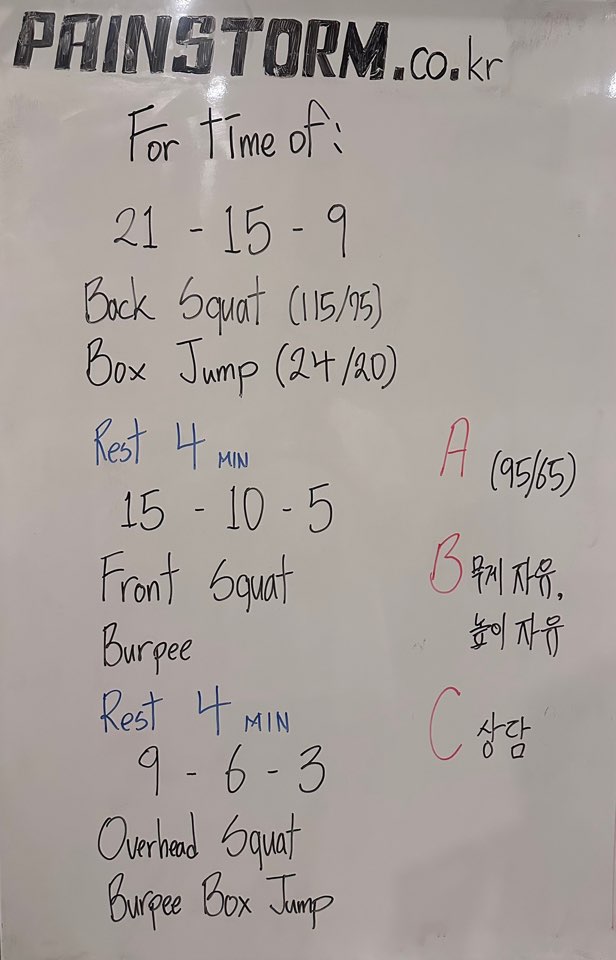 PAINSTORM.co.kr
For time of:
21 - 15 - 9
Back Squat (115/75)
Box Jump (24/20)
Rest 4 MIN
15 - 10 - 5
Front Squat
Burpee
Rest 4 MIN
9 - 6 - 3
Overhead Squat
Burpee Box Jump
A (95/65)
B 무게 자유,
높이 자유
C 상담